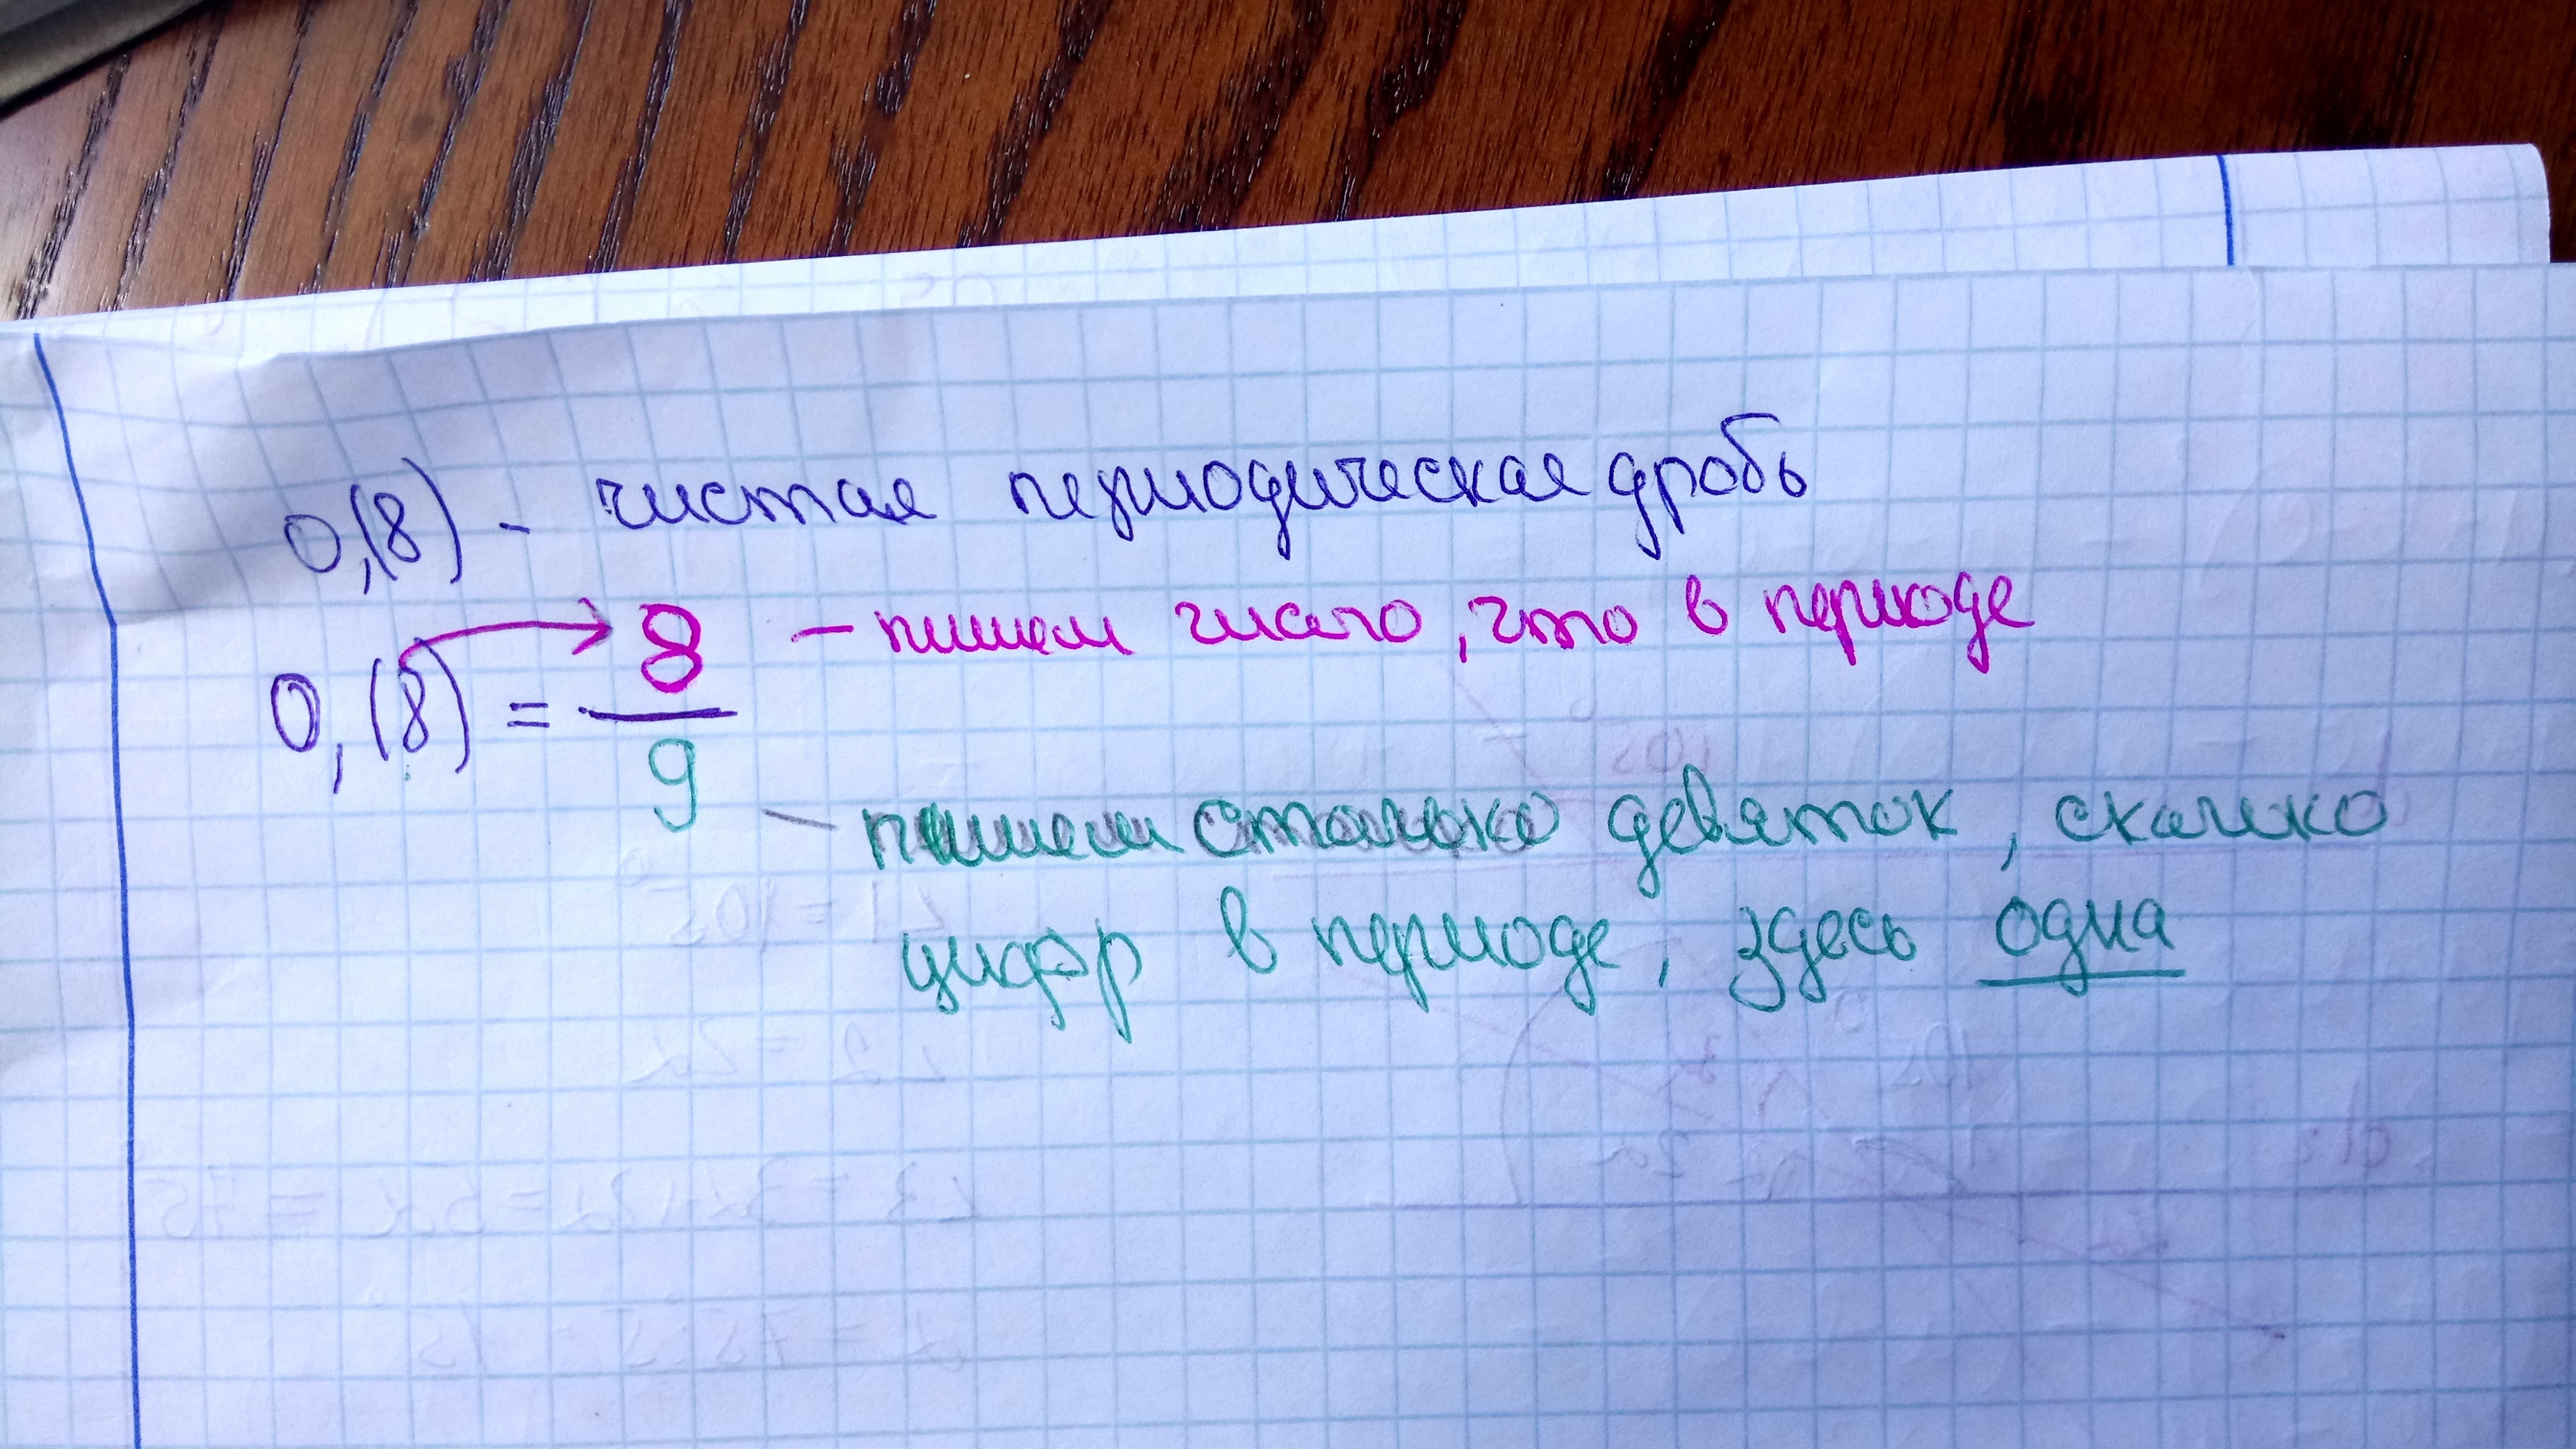 0,(8) - чистая периодическая дробь
0,(8) = 8/9 — пишем число, что в периоде
— пишем столько девяток, сколько
цифр в периоде, здесь одна